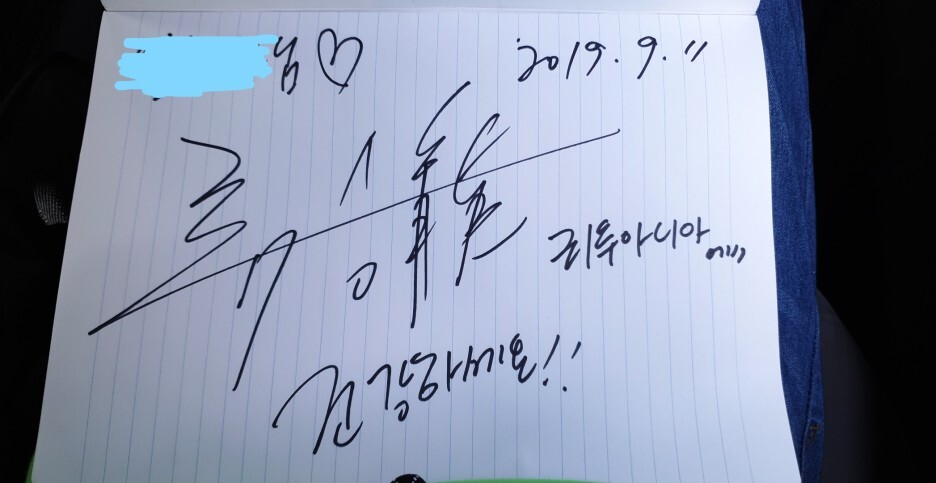 님♡ 2019. 9. 11
리투아니아에서
건강하세요!!